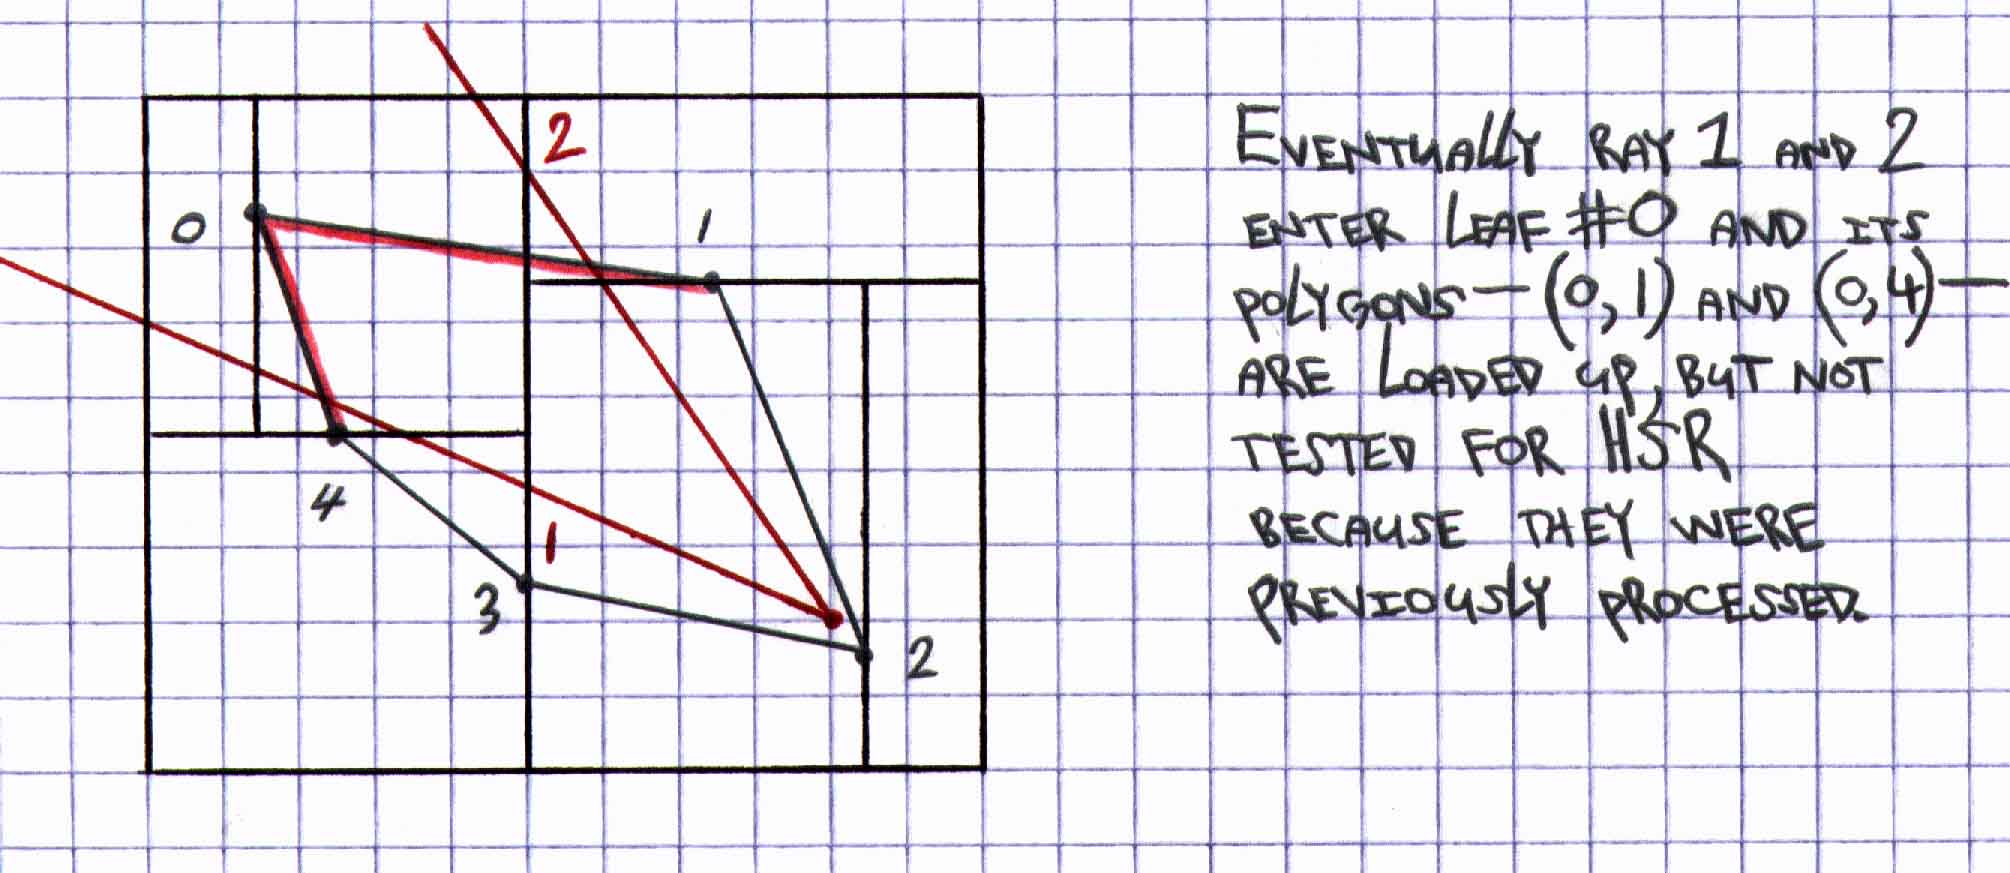 2
0
1
4
1
3
2
EVENTUALLY RAY 1 AND 2
ENTER LEAF #0 AND ITS
POLYGONS — (0,1) AND (0,4) —
ARE LOADED UP, BUT NOT
TESTED FOR HSR
BECAUSE THEY WERE
PREVIOUSLY PROCESSED.